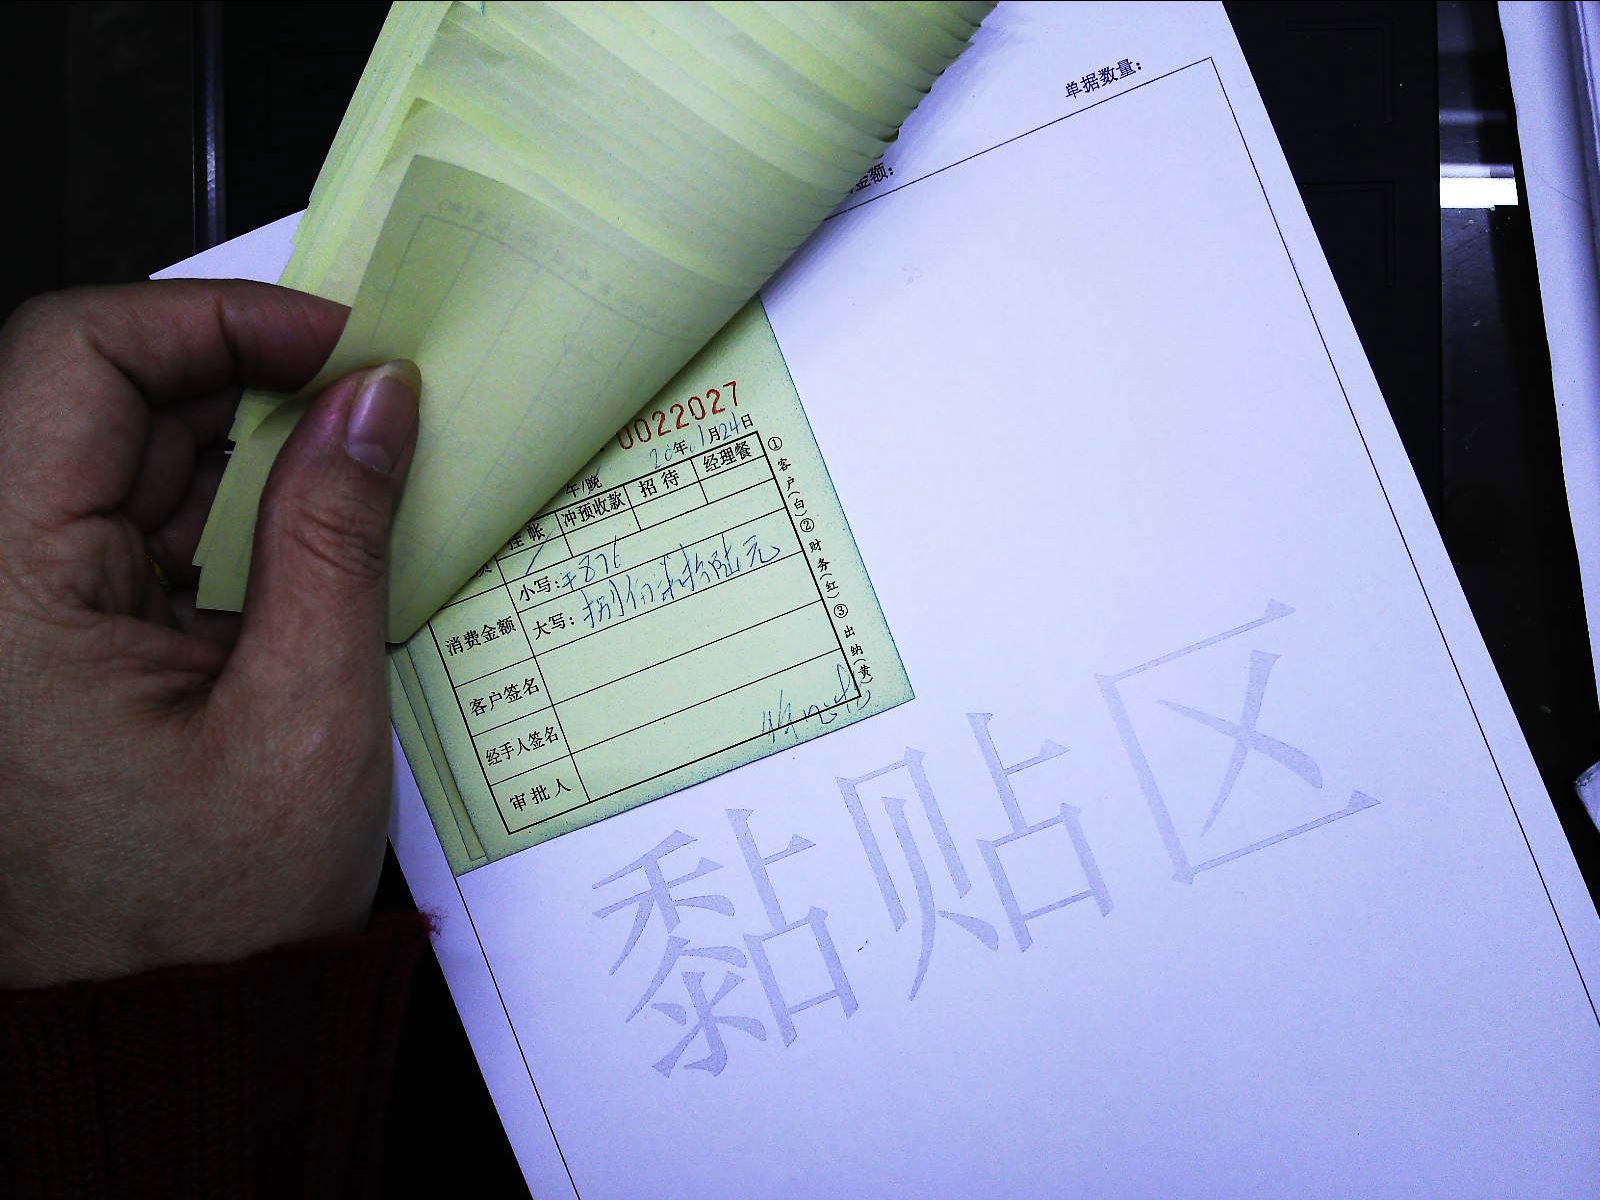 单据数量：
金额：
0022027
20年01月24日
午/晚
挂帐 冲预收款 招待 经理餐
小写：¥876
消费金额
大写：捌佰柒拾陆元
客户签名
经手人签名
审批人
①客户（白）②财务（红）③出纳（黄）
黏贴区